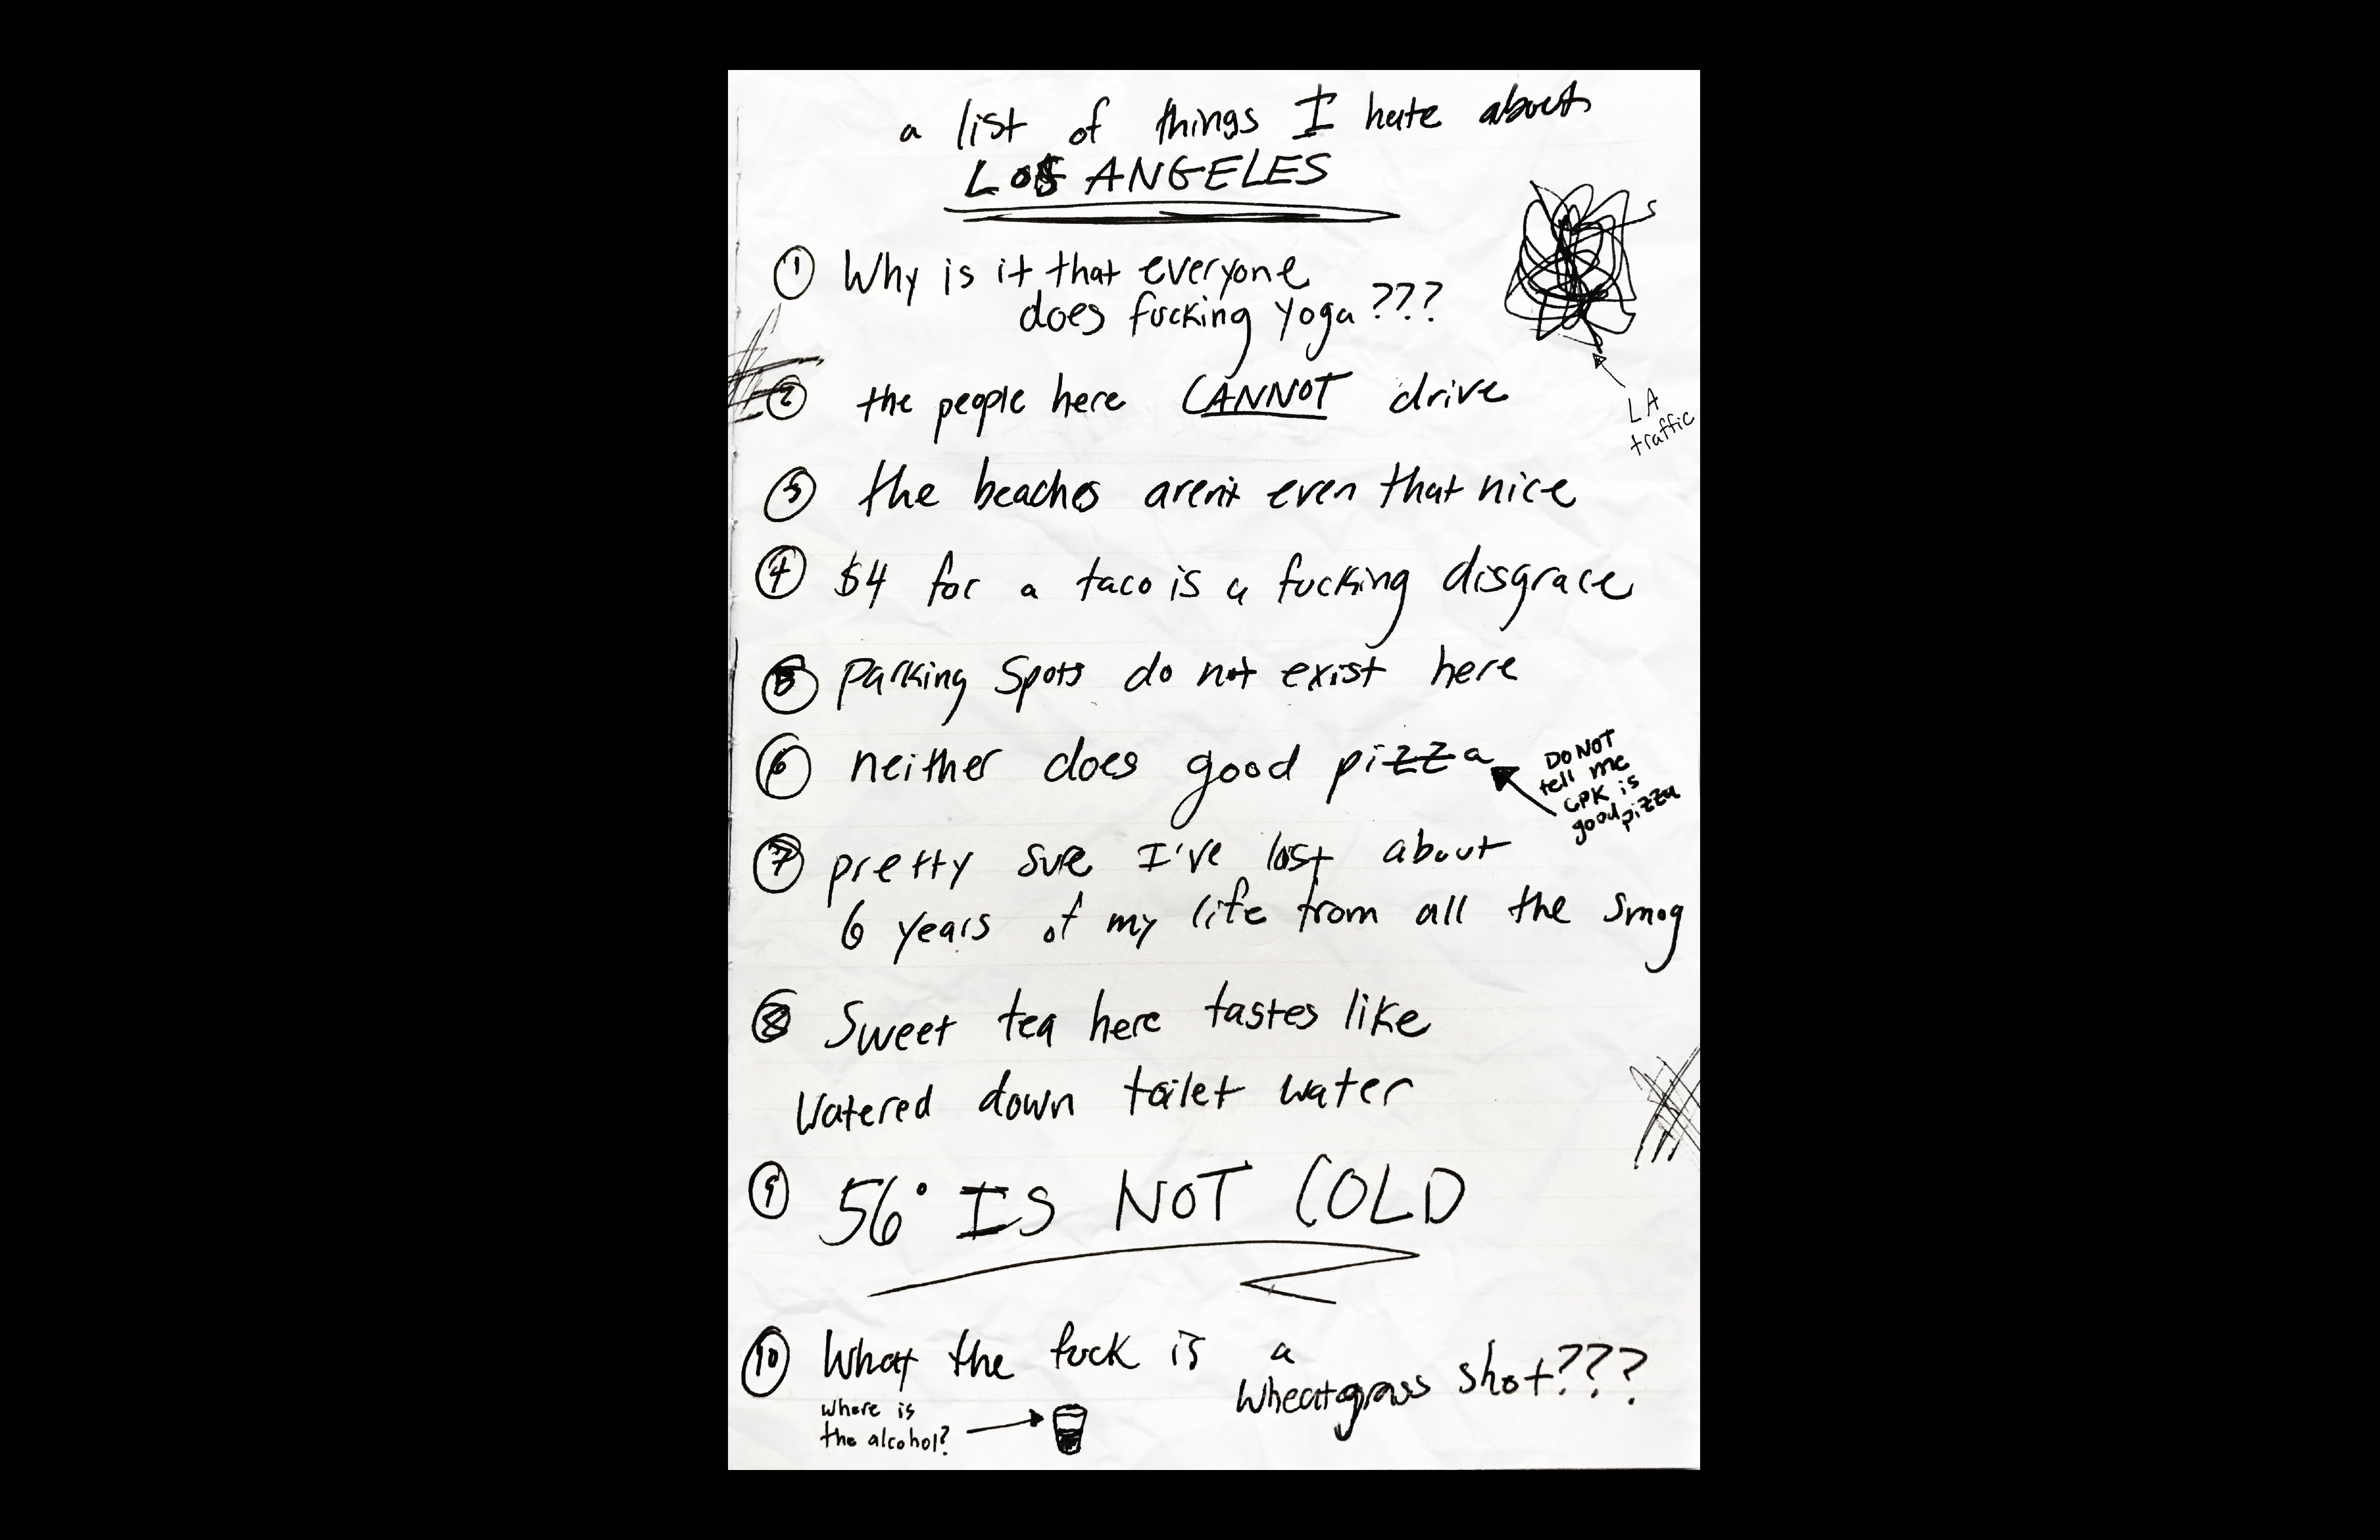 a list of things I hate about
LOS ANGELES
① Why is it that everyone
does fucking yoga???
LA
traffic
② the people here CANNOT drive
③ the beaches aren't even that nice
④ $4 for a taco is a fucking disgrace
⑤ Parking Spots do not exist here
⑥ neither does good pizza
DO NOT
tell me
CPK is
good pizza
⑦ pretty sure I've lost about
6 years of my life from all the smog
⑧ Sweet tea here tastes like
Watered down toilet water
⑨ 56° IS NOT COLD
⑩ What the fuck is a
wheatgrass shot???
where is
the alcohol?